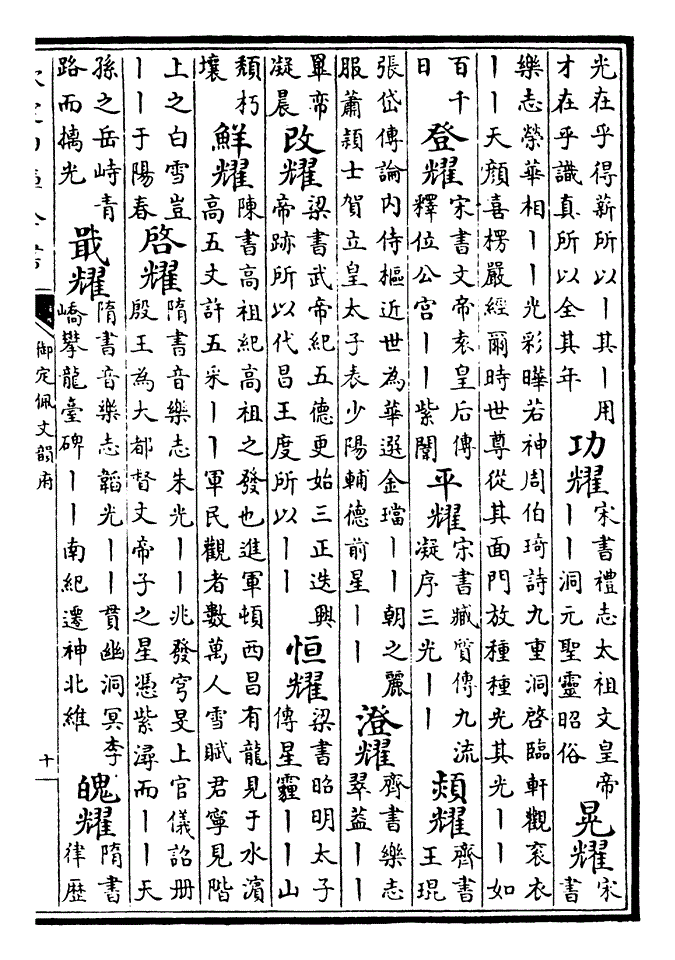 光在乎得薪所以丨其丨用
才在乎識真所以全其年
功耀
宋書禮志太祖文皇帝
丨丨洞元聖靈昭俗
晃耀
宋
書
樂志榮華相丨丨光彩曄若神周伯琦詩九重洞啓臨軒觀衮衣
丨丨天顔喜楞嚴經爾時世尊從其面門放種種光其光丨丨如
百千
日
登耀
宋書文帝袁皇后傳
釋位公宫丨丨紫闈
平耀
宋書臧質傳九流
凝序三光丨丨
熲耀
齊書
王琨
張岱傳論内侍樞近世為華選金璫丨丨朝之麗
服蕭頴士賀立皇太子表少陽輔德前星丨丨
澄耀
齊書樂志
翠蓋丨丨
畢帟
凝晨
改耀
梁書武帝紀五德更始三正迭興
帝跡所以代昌王度所以丨丨
恒耀
梁書昭明太子
傳星霾丨丨山
頽朽
壤
鮮耀
陳書高祖紀高祖之發也進軍頓西昌有龍見于水濱
高五丈許五采丨丨軍民觀者數萬人雪賦君寧見階
上之白雪豈
丨丨于陽春
啓耀
隋書音樂志朱光丨丨兆發穹旻上官儀詔册
殷王為大都督文帝子之星憑紫潯而丨丨天
孫之岳峙青
路而摛光
戢耀
隋書音樂志韜光丨丨貫幽洞冥李
嶠攀龍臺碑丨丨南紀遷神北維
魄耀
隋書
律歷
御定佩文韻府
十